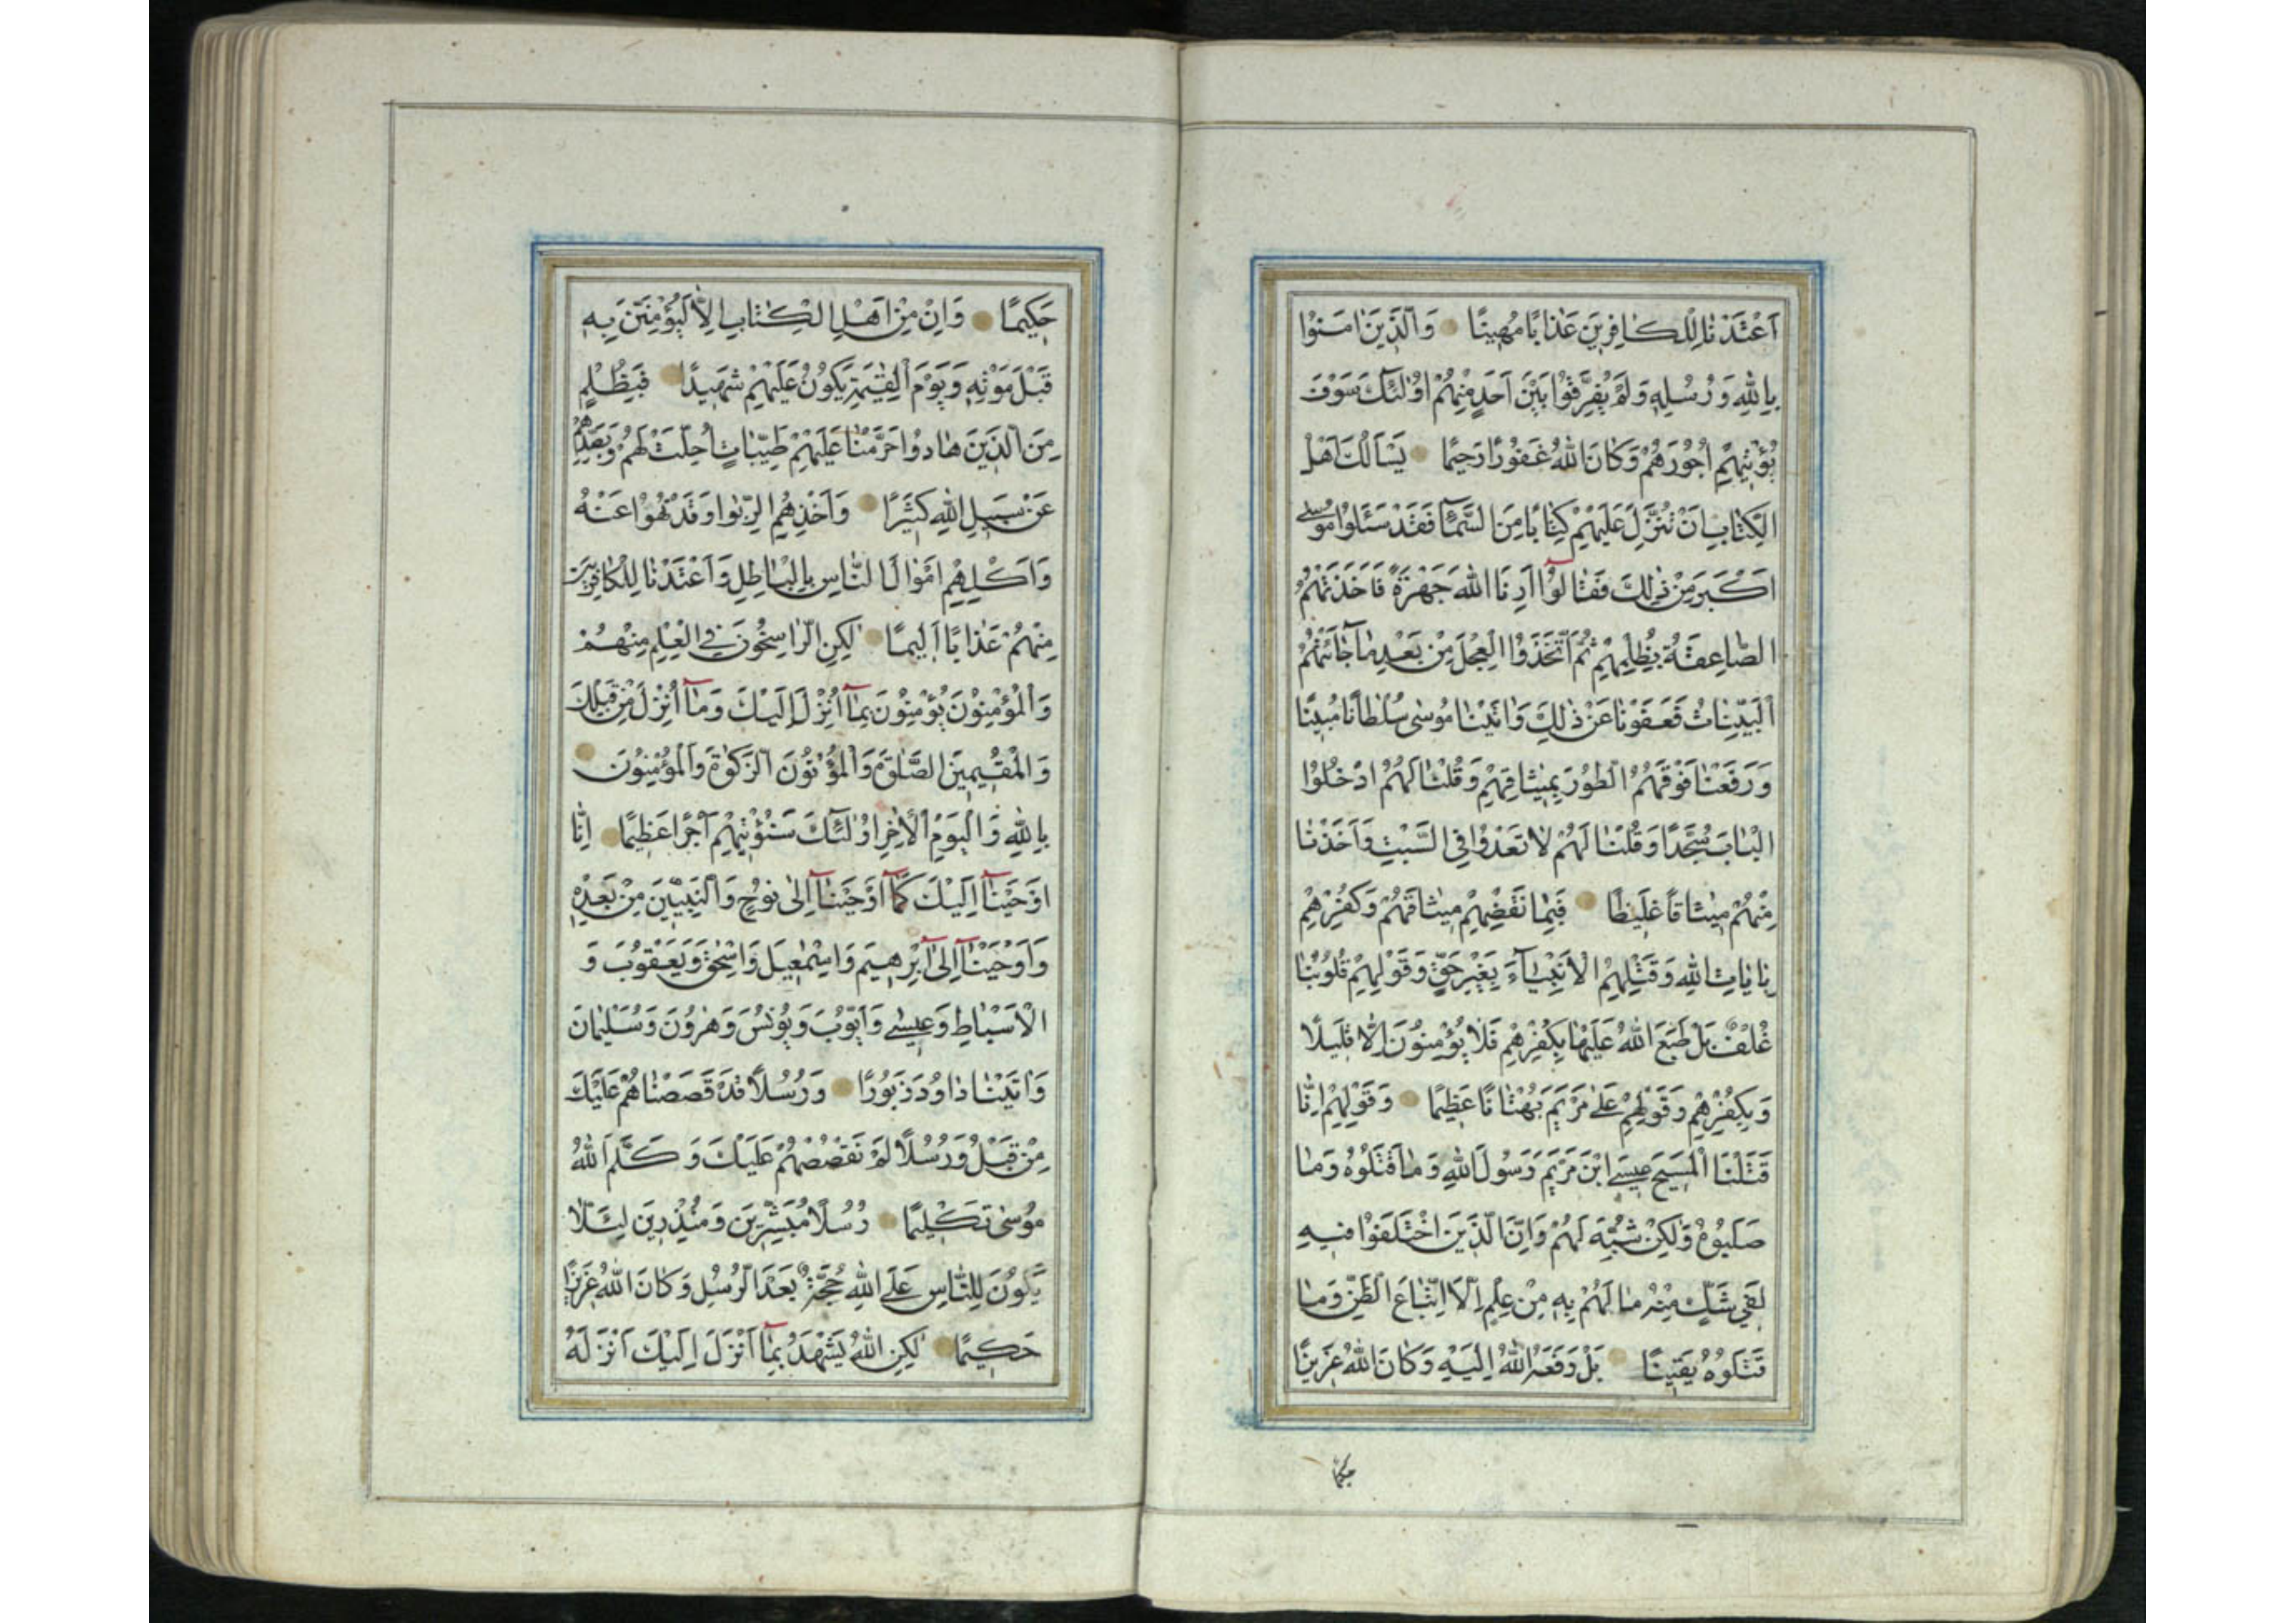 اَعْتَدْنَا لِلْكَافِرِينَ عَذَابًا مُهِينًا وَالَّذِينَ اٰمَنُوا
بِاللّٰهِ وَرُسُلِهِ وَلَمْ يُفَرِّقُوا بَيْنَ اَحَدٍ مِنْهُمْ اُولٰئِكَ سَوْفَ
يُؤْتِيهِمْ اُجُورَهُمْ وَكَانَ اللّٰهُ غَفُورًا رَحِيمًا يَسْاَلُكَ اَهْلُ
الْكِتَابِ اَنْ تُنَزِّلَ عَلَيْهِمْ كِتَابًا مِنَ السَّمَآءِ فَقَدْ سَئَلُوا مُوسٰى
اَكْبَرَ مِنْ ذٰلِكَ فَقَالُوٓا اَرِنَا اللّٰهَ جَهْرَةً فَاَخَذَتْهُمُ
الصَّاعِقَةُ بِظُلْمِهِمْ ثُمَّ اتَّخَذُوا الْعِجْلَ مِنْ بَعْدِ مَا جَآئَتْهُمُ
الْبَيِّنَاتُ فَعَفَوْنَا عَنْ ذٰلِكَ وَاٰتَيْنَا مُوسٰى سُلْطَانًا مُبِينًا
وَرَفَعْنَا فَوْقَهُمُ الطُّورَ بِمِيثَاقِهِمْ وَقُلْنَا لَهُمُ ادْخُلُوا
الْبَابَ سُجَّدًا وَقُلْنَا لَهُمْ لَا تَعْدُوا فِي السَّبْتِ وَاَخَذْنَا
مِنْهُمْ مِيثَاقًا غَلِيظًا فَبِمَا نَقْضِهِمْ مِيثَاقَهُمْ وَكُفْرِهِمْ
بِاٰيَاتِ اللّٰهِ وَقَتْلِهِمُ الْاَنْبِيَآءَ بِغَيْرِ حَقٍّ وَقَوْلِهِمْ قُلُوبُنَا
غُلْفٌ بَلْ طَبَعَ اللّٰهُ عَلَيْهَا بِكُفْرِهِمْ فَلَا يُؤْمِنُونَ اِلَّا قَلِيلًا
وَبِكُفْرِهِمْ وَقَوْلِهِمْ عَلٰى مَرْيَمَ بُهْتَانًا عَظِيمًا وَقَوْلِهِمْ اِنَّا
قَتَلْنَا الْمَسِيحَ عِيسَى ابْنَ مَرْيَمَ رَسُولَ اللّٰهِ وَمَا قَتَلُوهُ وَمَا
صَلَبُوهُ وَلٰكِنْ شُبِّهَ لَهُمْ وَاِنَّ الَّذِينَ اخْتَلَفُوا فِيهِ
لَفِي شَكٍّ مِنْهُ مَا لَهُمْ بِهِ مِنْ عِلْمٍ اِلَّا اتِّبَاعَ الظَّنِّ وَمَا
قَتَلُوهُ يَقِينًا بَلْ رَفَعَهُ اللّٰهُ اِلَيْهِ وَكَانَ اللّٰهُ عَزِيزًا
حكيما
حَكِيمًا وَاِنْ مِنْ اَهْلِ الْكِتَابِ اِلَّا لَيُؤْمِنَنَّ بِهِ
قَبْلَ مَوْتِهِ وَيَوْمَ الْقِيٰمَةِ يَكُونُ عَلَيْهِمْ شَهِيدًا فَبِظُلْمٍ
مِنَ الَّذِينَ هَادُوا حَرَّمْنَا عَلَيْهِمْ طَيِّبَاتٍ اُحِلَّتْ لَهُمْ وَبِصَدِّهِمْ
عَنْ سَبِيلِ اللّٰهِ كَثِيرًا وَاَخْذِهِمُ الرِّبٰوا وَقَدْ نُهُوا عَنْهُ
وَاَكْلِهِمْ اَمْوَالَ النَّاسِ بِالْبَاطِلِ وَاَعْتَدْنَا لِلْكَافِرِينَ
مِنْهُمْ عَذَابًا اَلِيمًا لٰكِنِ الرَّاسِخُونَ فِي الْعِلْمِ مِنْهُمْ
وَالْمُؤْمِنُونَ يُؤْمِنُونَ بِمَآ اُنْزِلَ اِلَيْكَ وَمَآ اُنْزِلَ مِنْ قَبْلِكَ
وَالْمُقِيمِينَ الصَّلٰوةَ وَالْمُؤْتُونَ الزَّكٰوةَ وَالْمُؤْمِنُونَ
بِاللّٰهِ وَالْيَوْمِ الْاٰخِرِ اُولٰئِكَ سَنُؤْتِيهِمْ اَجْرًا عَظِيمًا اِنَّا
اَوْحَيْنَآ اِلَيْكَ كَمَآ اَوْحَيْنَآ اِلٰى نُوحٍ وَالنَّبِيِّينَ مِنْ بَعْدِهِ
وَاَوْحَيْنَآ اِلٰىٓ اِبْرٰهِيمَ وَاِسْمٰعِيلَ وَاِسْحٰقَ وَيَعْقُوبَ وَ
الْاَسْبَاطِ وَعِيسٰى وَاَيُّوبَ وَيُونُسَ وَهٰرُونَ وَسُلَيْمَانَ
وَاٰتَيْنَا دَاوُدَ زَبُورًا وَرُسُلًا قَدْ قَصَصْنَاهُمْ عَلَيْكَ
مِنْ قَبْلُ وَرُسُلًا لَمْ نَقْصُصْهُمْ عَلَيْكَ وَكَلَّمَ اللّٰهُ
مُوسٰى تَكْلِيمًا رُسُلًا مُبَشِّرِينَ وَمُنْذِرِينَ لِئَلَّا
يَكُونَ لِلنَّاسِ عَلَى اللّٰهِ حُجَّةٌ بَعْدَ الرُّسُلِ وَكَانَ اللّٰهُ عَزِيزًا
حَكِيمًا لٰكِنِ اللّٰهُ يَشْهَدُ بِمَآ اَنْزَلَ اِلَيْكَ اَنْزَلَهُ